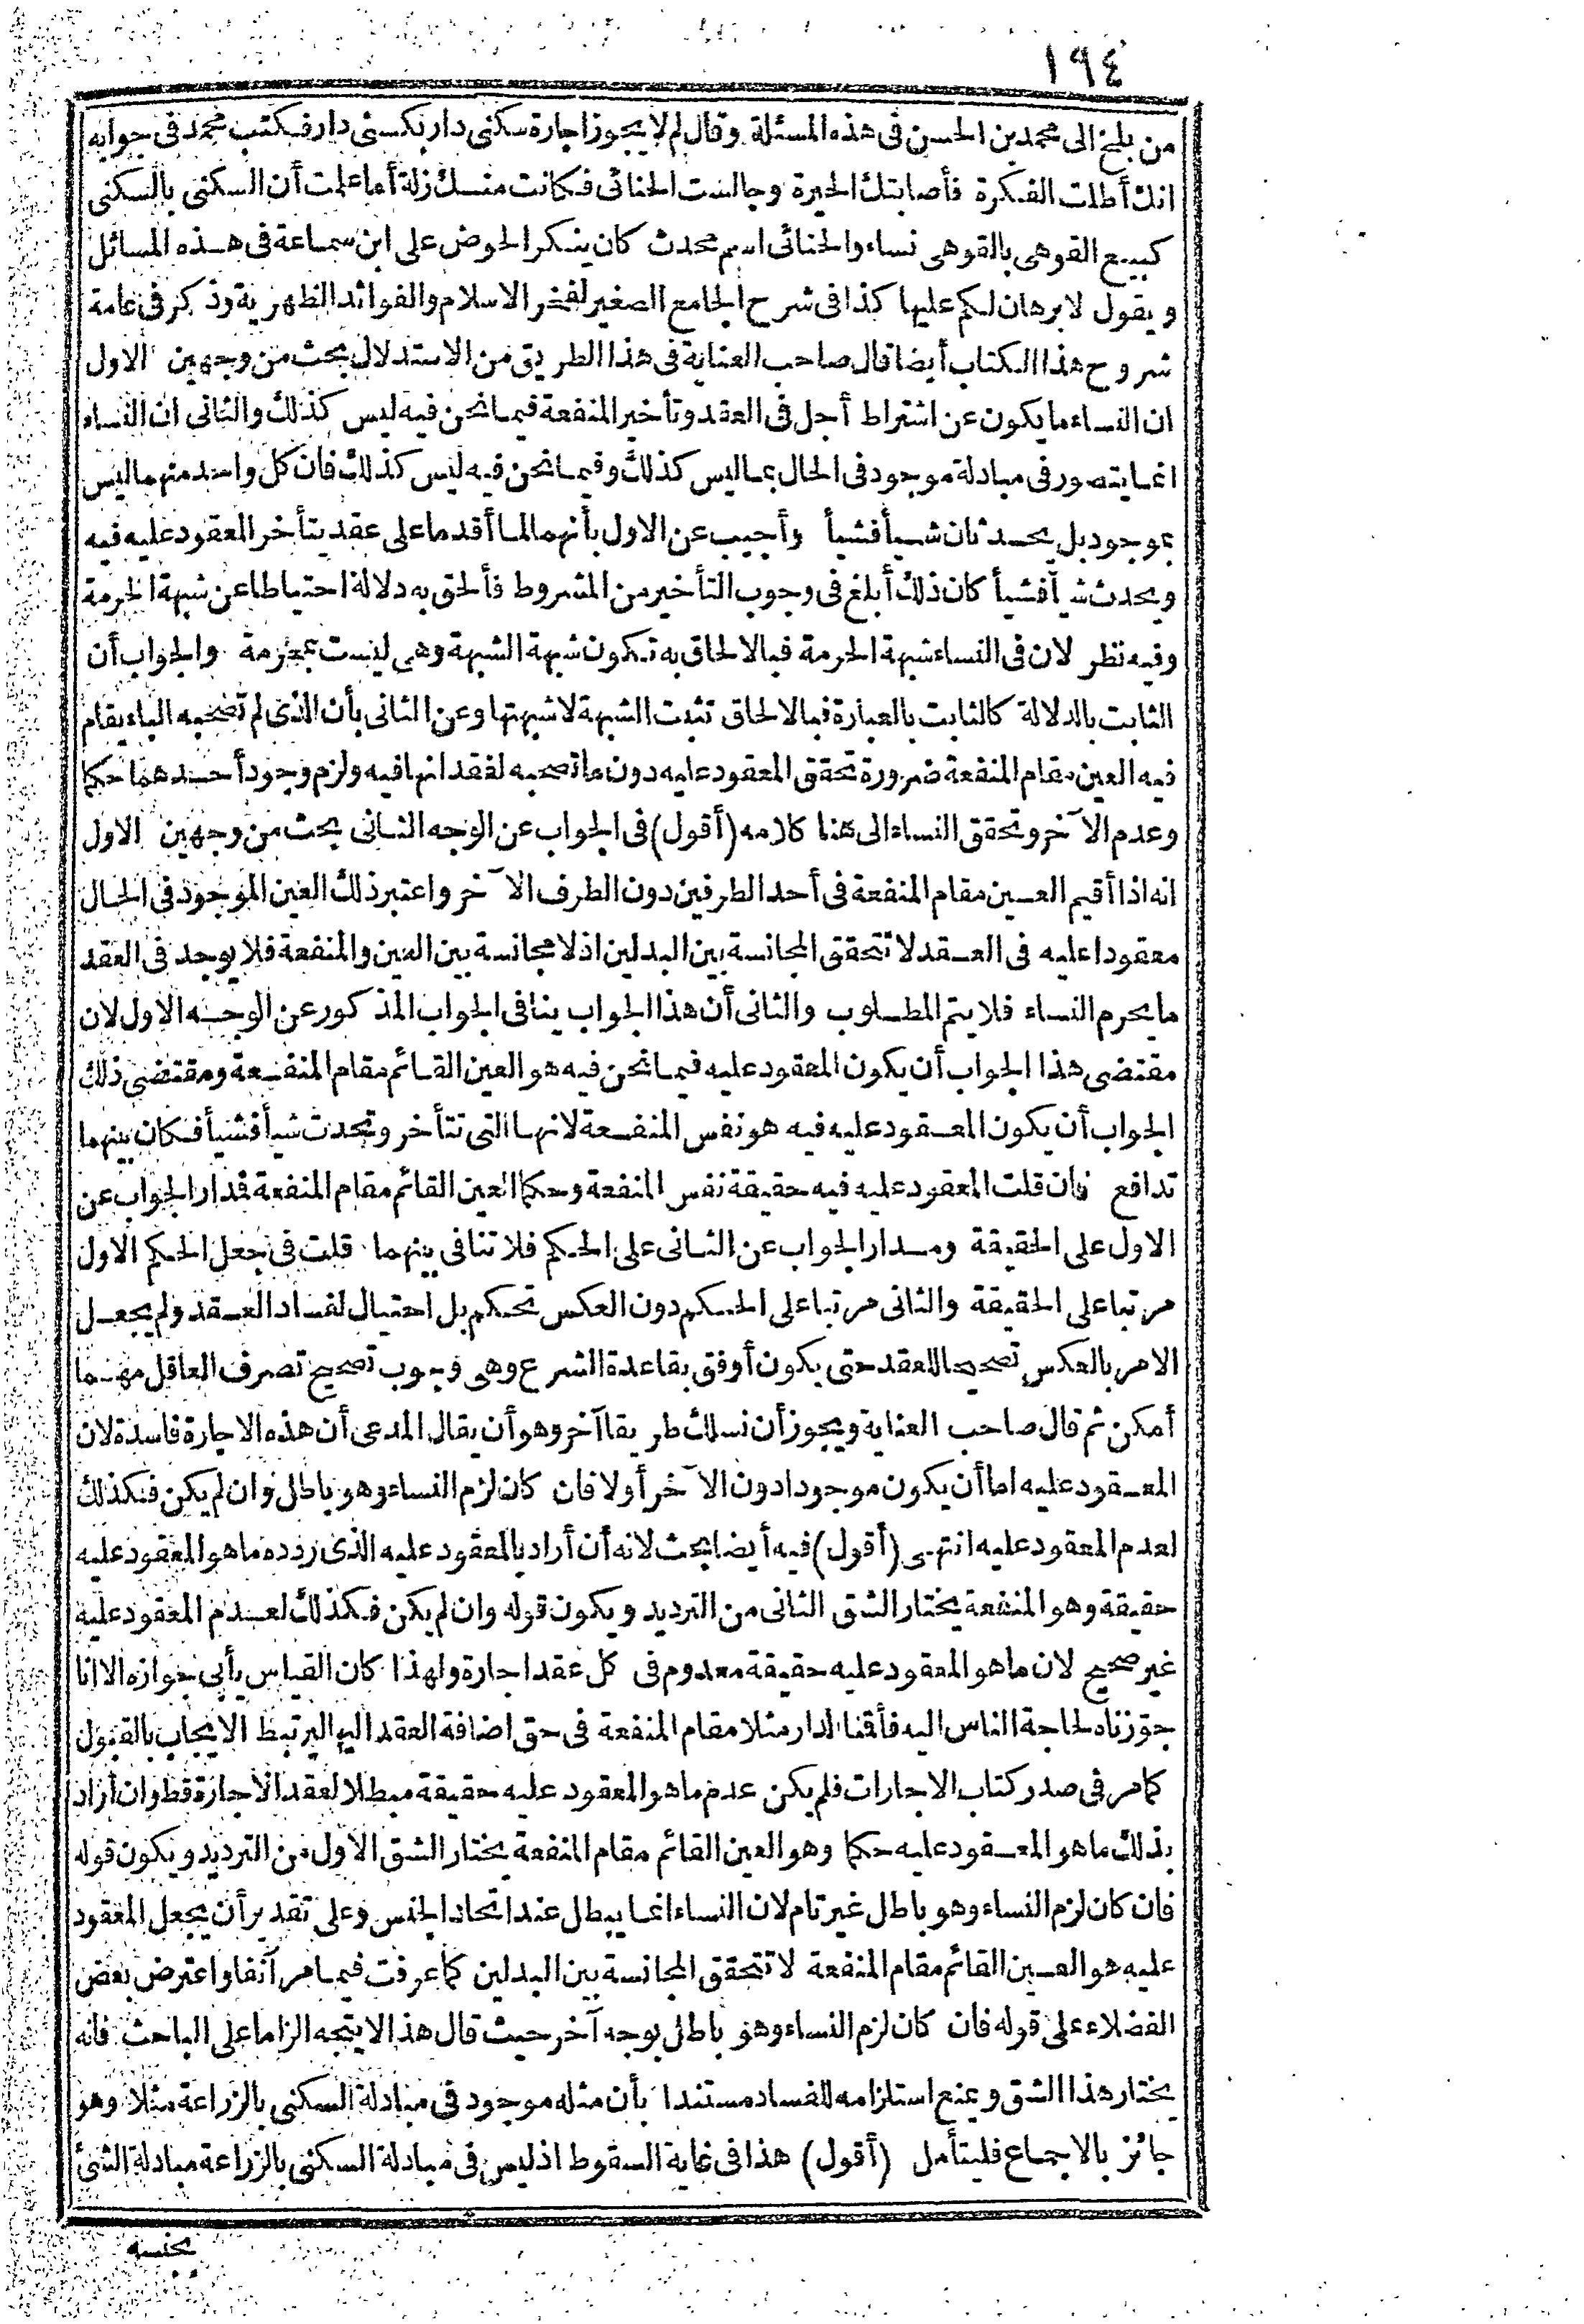 ١٩٤
من بلخ الى محمد بن الحسن في هذه المسئلة وقال لم لا يجوز اجارة سكنى دار بسكنى دار فكتب محمد في جوابه
انك أطلت الفكرة فأصابتك الحيرة وجالست الحنائى فكانت منك زلة أما علمت أن السكنى بالسكنى
كبيع القوهى بالقوهى نساء والحنائى اسم محدث كان ينكر الخوض على ابن سماعة في هذه المسائل
ويقول لا برهان لكم عليها كذا في شرح الجامع الصغير لفخر الاسلام والفوائد الظهيرية وذكر في عامة
شروح هذا الكتاب أيضا قال صاحب العناية في هذا الطريق من الاستدلال بحث من وجهين الاول
ان النساء ما يكون عن اشتراط أجل في العقد وتأخير المنفعة فيما نحن فيه ليس كذلك والثاني ان النساء
انما يتصور في مبادلة موجود في الحال بما ليس كذلك وفيما نحن فيه ليس كذلك فان كل واحد منهما ليس
بموجود بل يحدثان شيأ فشيأ وأجيب عن الاول بأنهما لما أقدما على عقد يتأخر المعقود عليه فيه
ويحدث شيأ فشيأ كان ذلك أبلغ في وجوب التأخير من المشروط فألحق به دلالة احتياطا عن شبهة الحرمة
وفيه نظر لان في النساء شبهة الحرمة فبالالحاق به تكون شبهة الشبهة وهى ليست بمحرمة والجواب أن
الثابت بالدلالة كالثابت بالعبارة فبالالحاق تثبت الشبهة لا شبهتها وعن الثاني بأن الذى لم تصحبه الباء يقام
فيه العين مقام المنفعة ضرورة تحقق المعقود عليه دون ما تصحبه لفقدانها فيه ولزم وجود أحدهما حكما
وعدم الآخر وتحقق النساء الى هنا كلامه (أقول) في الجواب عن الوجه الثاني بحث من وجهين الاول
انه اذا أقيم العين مقام المنفعة في أحد الطرفين دون الطرف الآخر واعتبر ذلك العين الموجود في الحال
معقودا عليه في العقد لا تتحقق المجانسة بين البدلين اذ لا مجانسة بين العين والمنفعة فلا يوجد في العقد
ما يحرم النساء فلا يتم المطلوب والثاني أن هذا الجواب ينافى الجواب المذكور عن الوجه الاول لان
مقتضى هذا الجواب أن يكون المعقود عليه فيما نحن فيه هو العين القائم مقام المنفعة ومقتضى ذلك
الجواب أن يكون المعقود عليه فيه هو نفس المنفعة لانها التى تتأخر وتحدث شيأ فشيأ فكان بينهما
تدافع فان قلت المعقود عليه فيه حقيقة نفس المنفعة وحكما العين القائم مقام المنفعة فمدار الجواب عن
الاول على الحقيقة ومدار الجواب عن الثاني على الحكم فلا تنافى بينهما قلت في جعل الحكم الاول
مرتبا على الحقيقة والثانى مرتبا على الحكم دون العكس تحكم بل احتيال لفساد العقد ولم يجعل
الامر بالعكس تصحيحا للعقد حتى يكون أوفق بقاعدة الشرع وهى وجوب تصحيح تصرف العاقل مهما
أمكن ثم قال صاحب العناية ويجوز أن نسلك طريقا آخر وهو أن يقال المدعى أن هذه الاجارة فاسدة لان
المعقود عليه اما أن يكون موجودا دون الآخر أولا فان كان لزم النساء وهو باطل وان لم يكن فكذلك
لعدم المعقود عليه انتهى (أقول) فيه أيضا بحث لانه أن أراد بالمعقود عليه الذى ردده ما هو المعقود عليه
حقيقة وهو المنفعة يختار الشق الثاني من الترديد ويكون قوله وان لم يكن فكذلك لعدم المعقود عليه
غير صحيح لان ما هو المعقود عليه حقيقة معدوم في كل عقد اجارة ولهذا كان القياس يأبى جوازه الا انا
جوّزناه لحاجة الناس اليه فأقمنا الدار مثلا مقام المنفعة في حق اضافة العقد اليها ليرتبط الايجاب بالقبول
كما مر في صدر كتاب الاجارات فلم يكن عدم ما هو المعقود عليه حقيقة مبطلا لعقد الاجارة قط وان أراد
بذلك ما هو المعقود عليه حكما وهو العين القائم مقام المنفعة يختار الشق الاول من الترديد ويكون قوله
فان كان لزم النساء وهو باطل غير تام لان النساء انما يبطل عند اتحاد الجنس وعلى تقدير أن يجعل المعقود
عليه هو العين القائم مقام المنفعة لا تتحقق المجانسة بين البدلين كما عرفت فيما مر آنفا واعترض بعض
الفضلاء على قوله فان كان لزم النساء وهو باطل بوجه آخر حيث قال هذا لا يتجه الزاما على الباحث فانه
يختار هذا الشق ويمنع استلزامه للفساد مستندا بأن مثله موجود في مبادلة السكنى بالزراعة مثلا وهو
جائز بالاجماع فليتأمل (أقول) هذا في غاية السقوط اذ ليس في مبادلة السكنى بالزراعة مبادلة الشئ
بجنسه